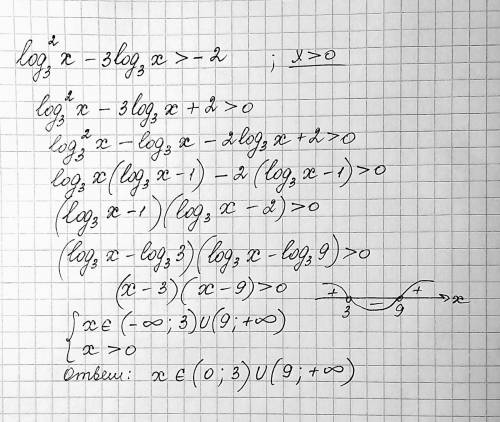 log₃²x − 3log₃x > −2 ; x > 0
log₃²x − 3log₃x + 2 > 0
log₃²x − log₃x − 2log₃x + 2 > 0
log₃x(log₃x − 1) − 2(log₃x − 1) > 0
(log₃x − 1)(log₃x − 2) > 0
(log₃x − log₃3)(log₃x − log₃9) > 0
(x − 3)(x − 9) > 0
+ − + x
3 9
{ x ∈ (−∞; 3) ∪ (9; +∞)
x > 0
Ответ: x ∈ (0; 3) ∪ (9; +∞)